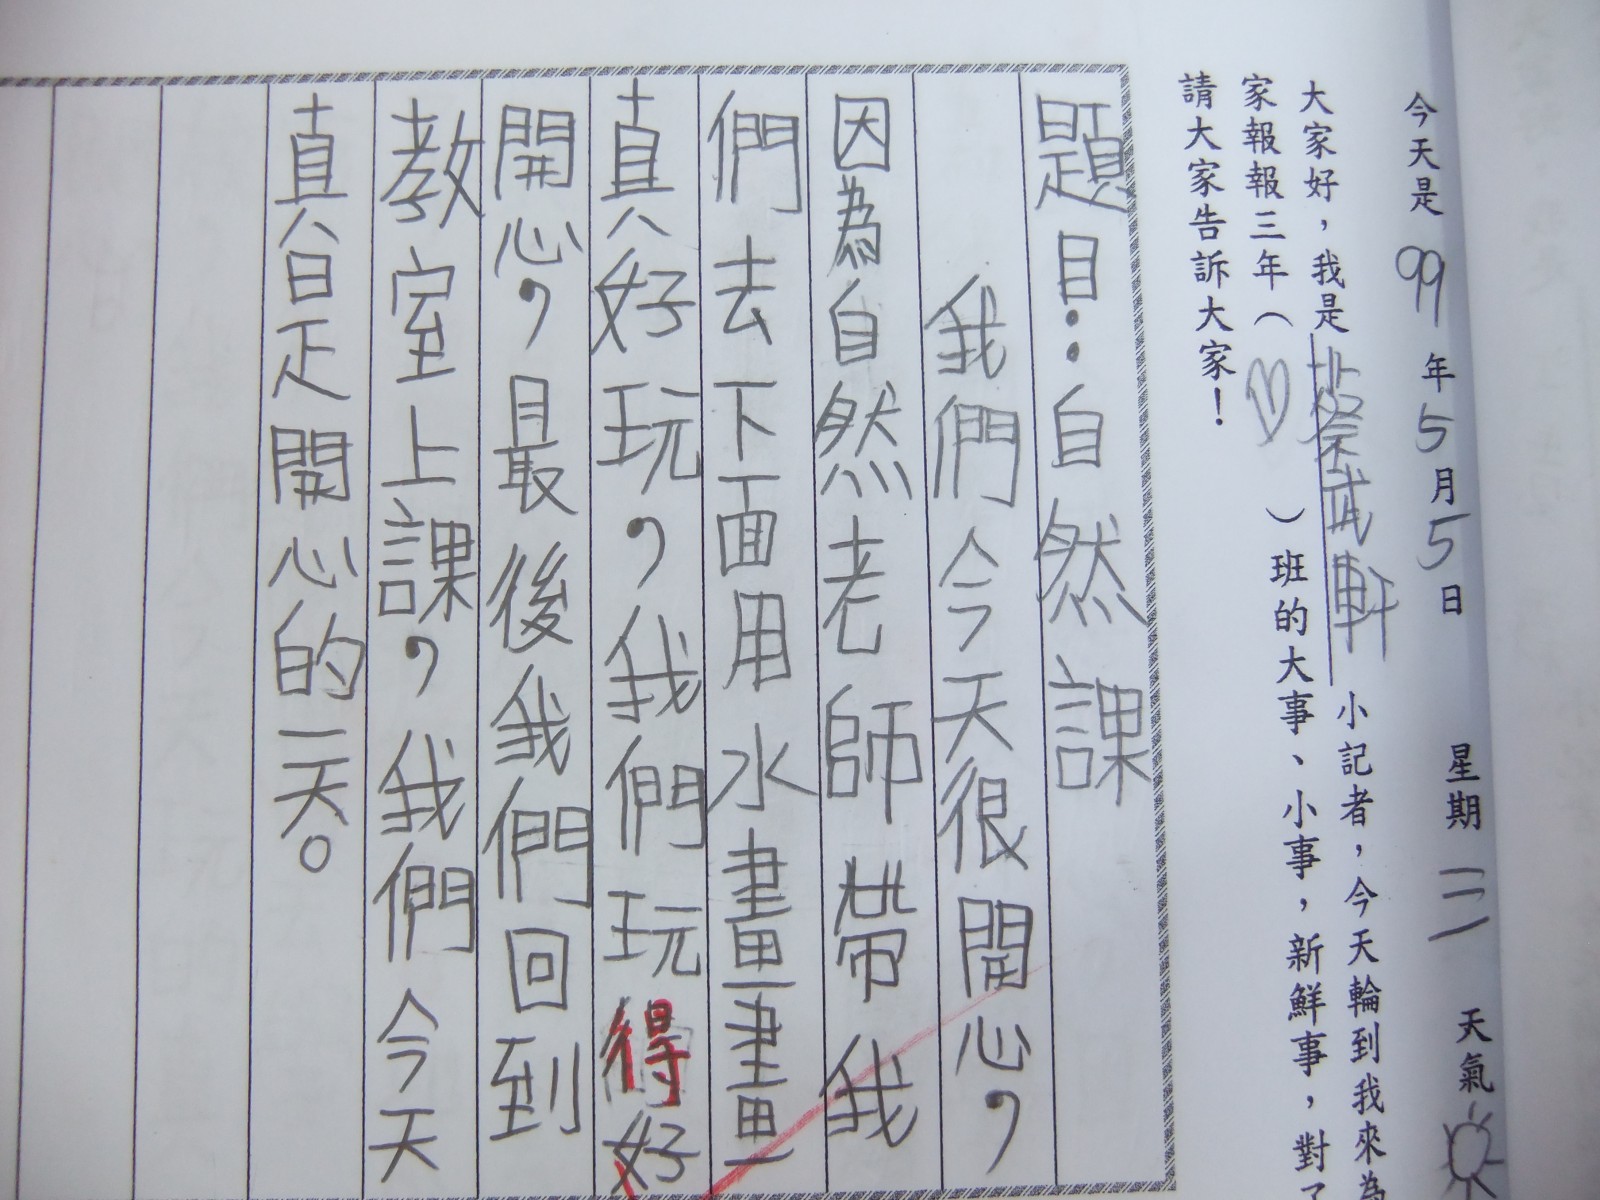 今天是99年5月5日 星期三 天氣
大家好，我是蔡軒小記者，今天輪到我來為
家報報三年（♡）班的大事、小事，新鮮事，對了
請大家告訴大家！
題目：自然課
我們今天很開心，
因為自然老師帶我
們去下面用水畫畫
真好玩，我們玩得好
開心，最後我們回到
教室上課，我們今天
真是開心的一天。